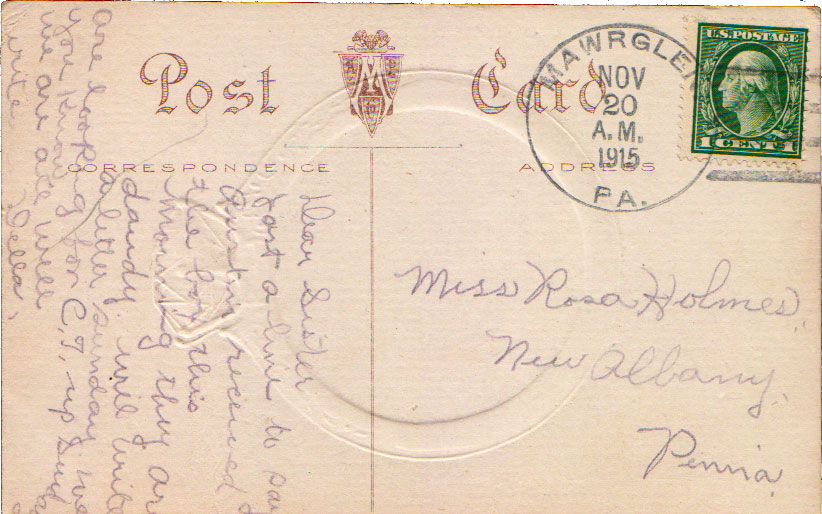 Post Card
CORRESPONDENCE
ADDRESS
MAWRGLEN
NOV
20
A.M.
1915
PA.
U.S. POSTAGE
1 CENT 1
Dear Sister
Just a line to say
Austin received
the box this
Morning they are
dandy. will write
a letter sunday we
are looking for C,T, up
you know
we are all well
write - Della,
Miss Rosa Holmes,
New Albany,
Penna,